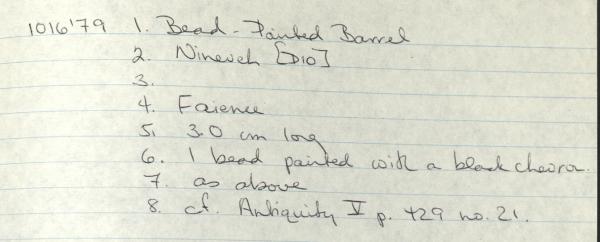 1016'79 1. Bead - Painted Barrel
2. Nineveh [D10]
3.
4. Faience
5. 3.0 cm long
6. 1 bead painted with a black chevron.
7. as above
8. cf. Antiquity V p. 429 no. 21.